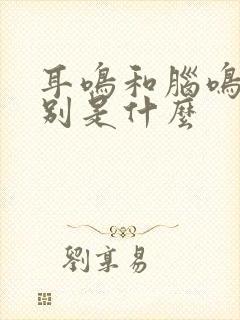 耳鳴和腦鳴
別是什麼
劉享易